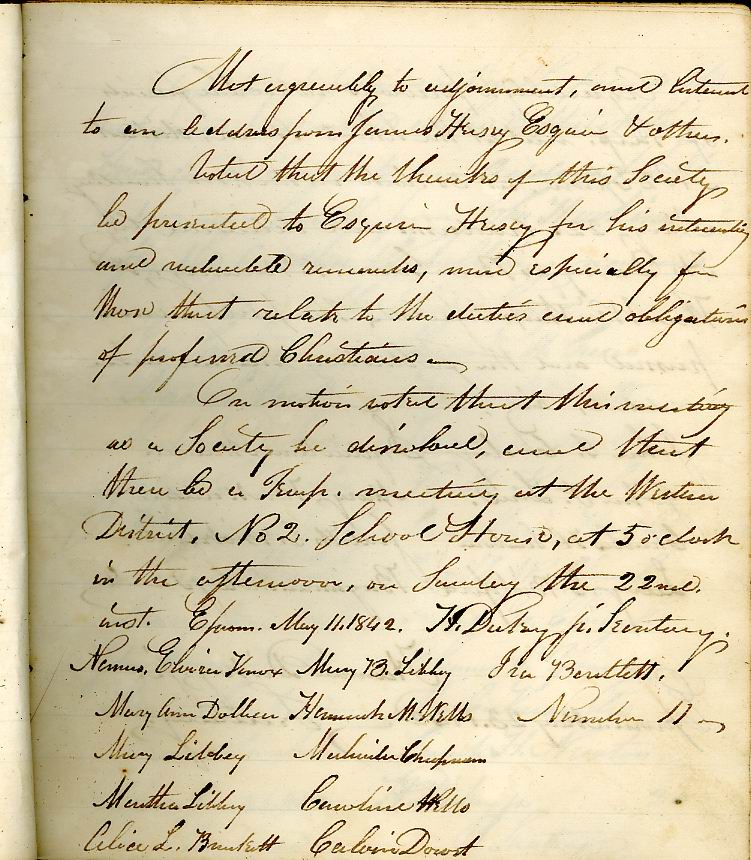 Met agreeably to adjournment, and listened
to an address from James Hersey Esquire & others.
Voted that the thanks of this Society
be presented to Esquire Hersey for his interesting
and valuable remarks, more especially for
those that relate to the duties and obligations
of professed Christians
On motion voted that this meeting
as a Society be disolved, and that
there be a Temp. meeting at the Western
District, No 2. School House, at 5 o'clock
in the afternoon, on Sunday the 22nd.
inst. Epsom. May 11. 1842. H. jr. Secretary.
Names, Elvira Knox Mary B. Libby Ira Bartlett.
Mary Ann Dolbeer Hannah M. Wells Number 11
Mary Libbey Malinda Chapman
Martha Libbey Caroline Wells
Celia L. Bartlett Calvin Dowst